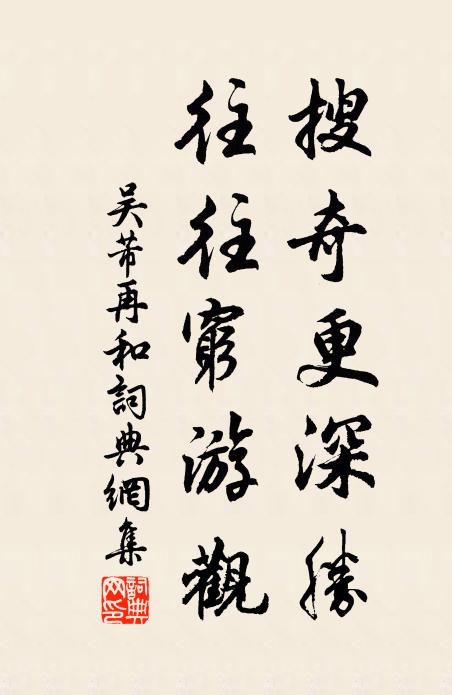 搜奇更深勝
往往窮游觀
吴芾再和詞典網集
詞典網印